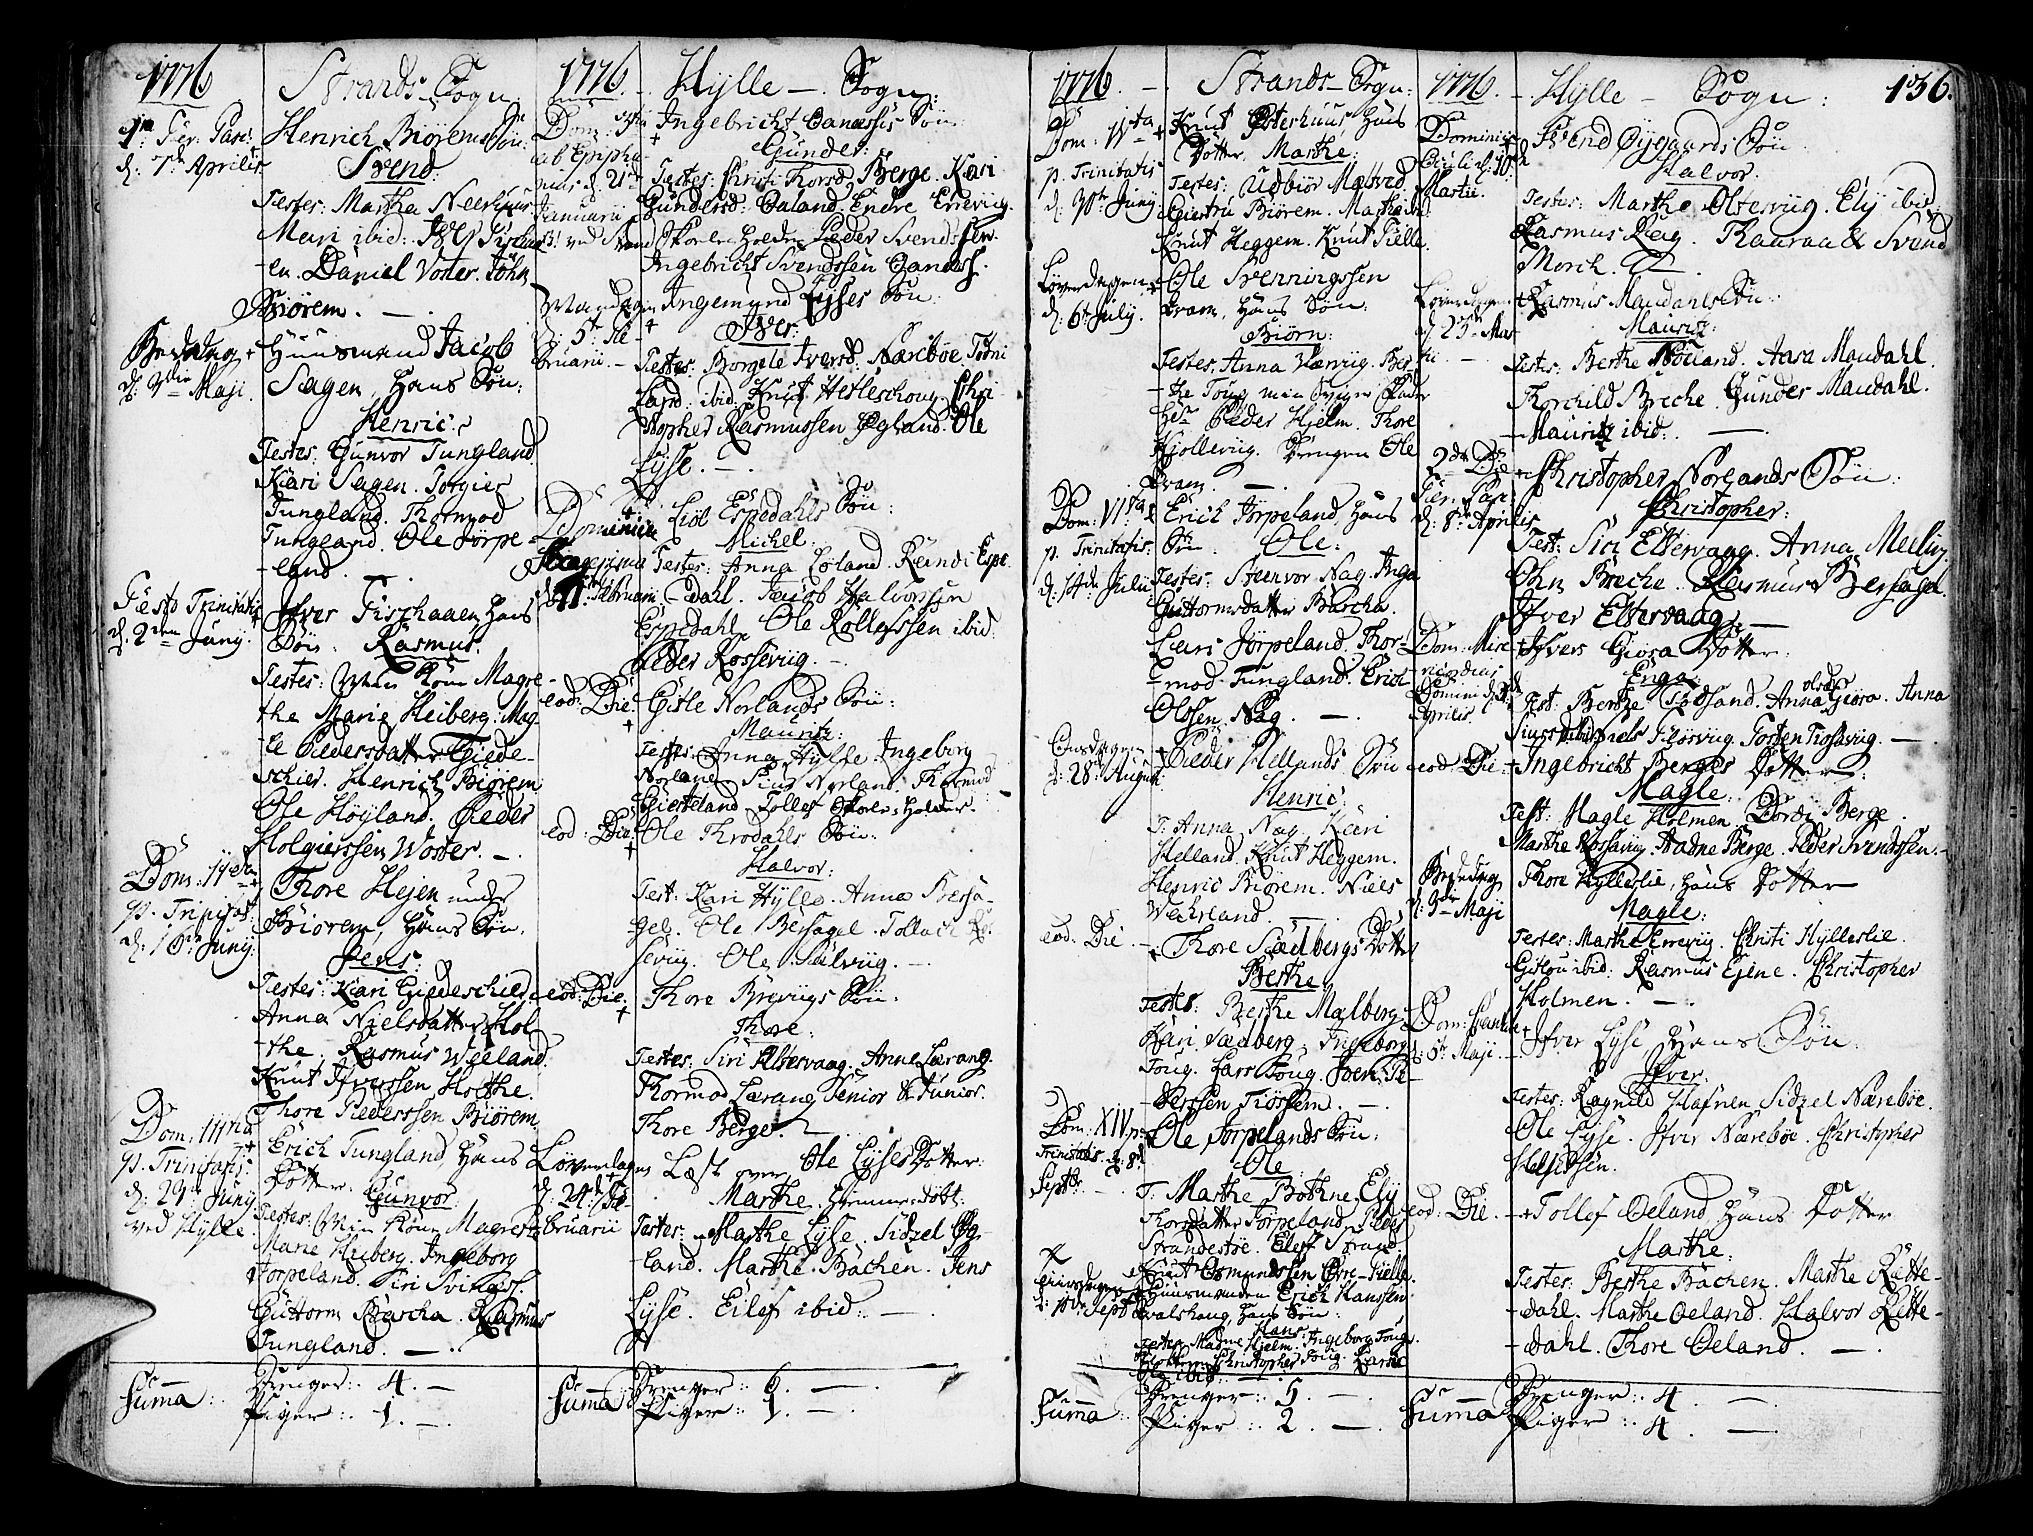 1776
Strands Sogn:
1m Fer. Pasc:
d: 7de Aprilis
Henrich Biørems Søn:
Svend:
Testes: Martha Neerhuus
Mari ibid:
-en. Daniel Voster. John
Biørem. —
Bededag
d: 3die Maji
Huusmand Jacob
Sagen, hans Søn:
Henric:
Testes: Gunvor Tungland
Kari Sagen. Torgier
Tungland. Thormod
Tungland. Ole Jørpe
-land.
Festo Trinitatis
d. 2den Junij
Ifver Fischaaen hans
Søn: Rasmus.
Testes: Min Kone Magre-
the Marie Heiberg. Mag-
-le Pedersdatter Giede-
schier. Henrich Biørem
Ole Høyland. Peder
Holgierssen Woster. —
Dom: IIda
p. Trinitat:
d: 16de Junij:
Thore Hejen under
Biørem, hans Søn.
Jens:
Testes: Kari Giedeschier
Anna Nielsdatter Hol
-the. Rasmus Weeland.
Knut Ifverssen Holthe.
Thore Pederssen Biørem.
Dom: IIItia
p. Trinitatis
d: 23de Junij
ved Hylle.
Erich Tungland, hans
Dotter. Gunvor
Testes: Min Kone Magrethe
Marie Heiberg. Ingeborg
Jorpeland. Siri Svinesf.
Guttorm Bascha. Rasmus
Tungland. —
Suma:
Drenger: 4. —
Piger: 1. —
1776. —
Hylle — Sogn:
Dom: 3tia
ab Epipha-
nias d. 21de
Januarii
ved Strand
Ingebricht Eanæssis Søn
Gunder:
Testes: Christi Thorsd Berge. Kari
Gundersd: Øaland. Endre Errevig.
Skoeleholder Peder Svendssen.
Ingebricht Svendssen Eanæss.
Mandagen
d: 5te Fe-
bruarii. —
Ingemund Lyses Søn:
Iver:
Testes: Borgele Iversd. Nærebøe Todni
Land ibid. Knut Hetleschoug. Chri
stopher Rasmussen Øgland. Ole
Lyse. —
Dominica
Sexagesima
d: 11te Februarii
Liøt Espedahls Søn:
Michel:
Testes: Anna Løland. Randi Espe
-Dahl. Jacob Halvorssen
Espedahl. Ole Rollefssen ibid.
Peder Rossevig. —
eod: Die:
Gisle Norlands Søn:
Mauritz:
Testes: Anna Hylle. Ingeborg
Norland. Siur Norland. Thormod
Giesteland. Tollef Skoele-Holder.
eod: Die
Ole Throdahls Søn:
Halvor:
Test: Kari Hylle. Anna Bersa-
gel. Ole Bersagel. Tollach Ro-
sevig. Ole Sulvig. —
eod: Die
Thore Brevigs Søn:
Thore:
Testes: Siri Eltervaag. Anne Lærang.
Thormod Lærang Senior & Junior.
Thore Berge.
Løverdagen
d: 24de Fe-
bruarii
Læst over Ole Lyses Dotter:
Marthe. hjemmedøbt:
Testes: Marthe Lyse. Sidzel Øg-
land. Marthe Bachen. Jens
Lyse. Eilef ibid: —
Suma
Drenger: 6. —
Piger: 1. —
1776. —
Strands Sogn:
Dom: IVta
p. Trinitatis
d. 30te Junij
Knut Østerhuus hans
Dotter. Marthe:
Testes: Udbiør
Giertru Biørem. Martha ibd.
Knut Heggem. Knut Fielle.
Løverdagen
d: 6te July.
Ole Svenningssen
Fram, hans Søn:
Biørn:
Testes, Anna Værvig. Ber-
-the Toug min Svoger
Hr Peder Hjelm. Thore
Kjollevig. Drengen Ole
Fram. —
Dom: VIta
p. Trinitatis.
d: 14de Julii
Erich Jørpeland, hans
Søn. Ole:
Testes: Steenvor Nag. Inga
Guttormsdatter Bascha.
Lari Jørpeland. Thor-
-mod Tungland. Erich
Olssen Nag. —
Onsdagen
d: 28de August
Peder Hellands Søn
Henric:
T: Anna Nag. Kari
Helland. Knut Heggem.
Henric Biørem. Niels
Wahrland. —
eod: Die
Thore Sædbergs Dotter
Berthe
Testes: Berthe Malberg
Kari Sædberg. Ingeborg
Toug. Lars Toug. Iver Pe-
-derssen Fiøssem. —
Dom: XIV p.
Trinitatis. d: 8de
Septbr. —
Ole Jorpelands Søn:
Ole
T: Marthe Bothne. Ely
Thorsdatter Jorpeland. Peder
Strandestøe. Elef Strand.
Knut Osmundssen Øvre-Fielle.
d: 10de Sept
Huusmanden Erich Hanssen
Hvalshaug hans Søn:
Hans
Testes Madme Hjelm. Ingeborg Toug.
Christopher Toug. Lars
Ole ibid:
Suma:
Drenger: 5. —
Piger: 2. —
1776. —
Hylle — Sogn:
136.
Dominica
Oculi d: 10de
Martii.
Svend Øygaards Søn
Halvor:
Testes: Marthe Oltesvig. Ely ibid.
Rasmus Rag. Thaaraa & Svend
Morch.
Løverdagen
d: 23de Mar
tii. —
Rasmus Maudahls Søn:
Mauritz:
Testes: Berthe Høiland. Aasa Maudahl.
Thorchild Breche. Gunder Maudahl.
-Mauritz ibid: —
2de Die
Fer: Pas
d: 8de Aprilis
Christopher Norlands Søn:
Christopher:
Test: Siri Eltervaag. Anna Meeling
Ohn Breche. Rasmus Bersagel.
Ifver Eltervaag. —
Dom: Mise
ricordias
Domini d: 21de
Aprilis.
Ifvers Giosa Dotter:
Enga:
Test: Berthe Todsland. Anna Olsdr Giosa. Anna
Siursd ibid. Niels Fiørvig. Torsten Fiosavig. —
eod: Die
Ingebricht Berges Dotter:
Magle:
Test: Magle Holmen. Dordi Berge.
Marthe Rossavig. Aadne Berge. Peder Svendssen.
Bededag
d: 3die Maji
Thore Hylleslie, hans Dotter
Magle:
Testes: Marthe Errevig. Christi Hylleslie.
Gitlou ibid: Rasmus Eiene. Christopher
Holmen. —
Dom: Cantate
d: 5te Maji. —
Ifver Lyse hans Søn:
Ifver:
Testes: Ragnild Hafnen Sidzel Nærebøe.
Ole Lyse. Ifver Nærebøe. Christopher
eod: Die. —
Tollef Øeland hans Dotter
Marthe:
Testes: Berthe Bachen. Marthe Rette-
-dahl. Marthe Oeland. Halvor Rette-
-dahl. Thore Oeland. —
Suma
Drenger: 4. —
Piger: 4. —